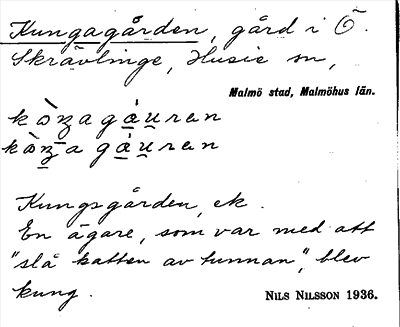 Kungagården, gård i Ö.
Skrävlinge, Husie sn,
Malmö stad, Malmöhus län.
Kungsgården, ek.
En ägare, som var med att
"slå katten av tunnan", blev
kung.
NILS NILSSON 1936.